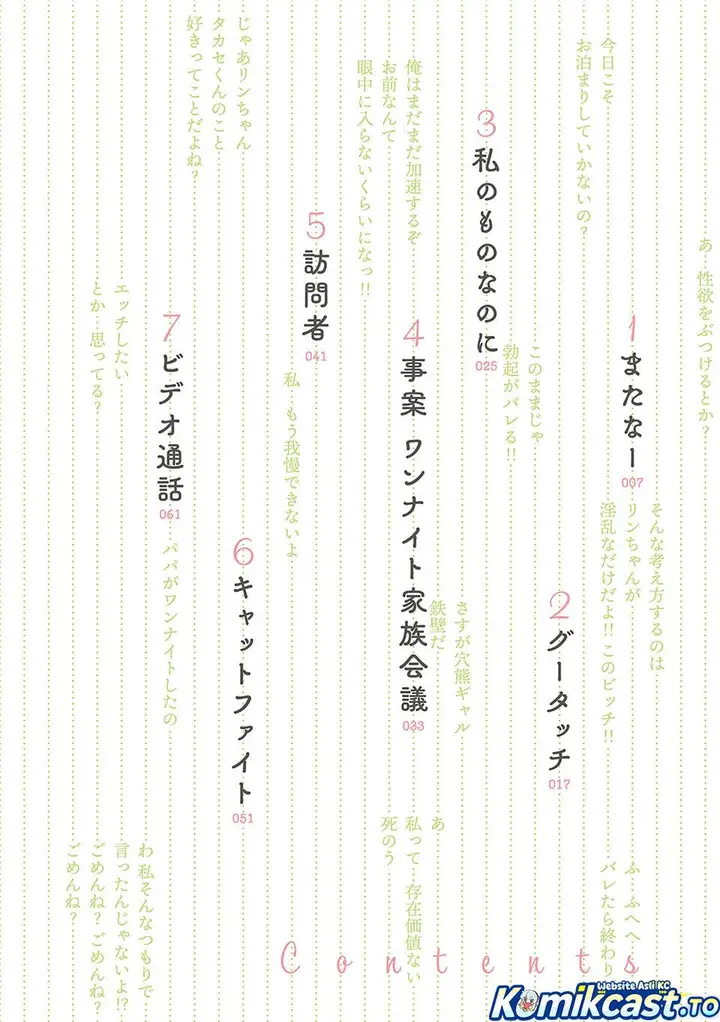 あ 性欲をぶつけるとか?
1
またなー
007
そんな考え方するのは
リンちゃんが
淫乱なだけだよ!! このビッチ!!
今日こそ
お泊まりしていかないの?
ふ…ふへへ…
バレたら終わり
2
グータッチ
017
このままじゃ
勃起がバレる!!
3
私のものなのに
025
さすが穴熊ギャル
鉄壁だ
俺はまだまだ加速するぞ
お前なんて
眼中に入らないくらいになっ!!
4
事案 ワンナイト家族会議
033
あ
私って…存在価値ない
死のう
5
訪問者
041
私 もう我慢できないよ
じゃあリンちゃん
タカセくんのこと
好きってことだよね?
6
キャットファイト
051
7
ビデオ通話
061
パパがワンナイトしたの
エッチしたい
とか…思ってる?
わ 私そんなつもりで
言ったんじゃないよ!?
ごめんね? ごめんね?
ごめんね?
Contents
Website Asli KC
Komikcast.to